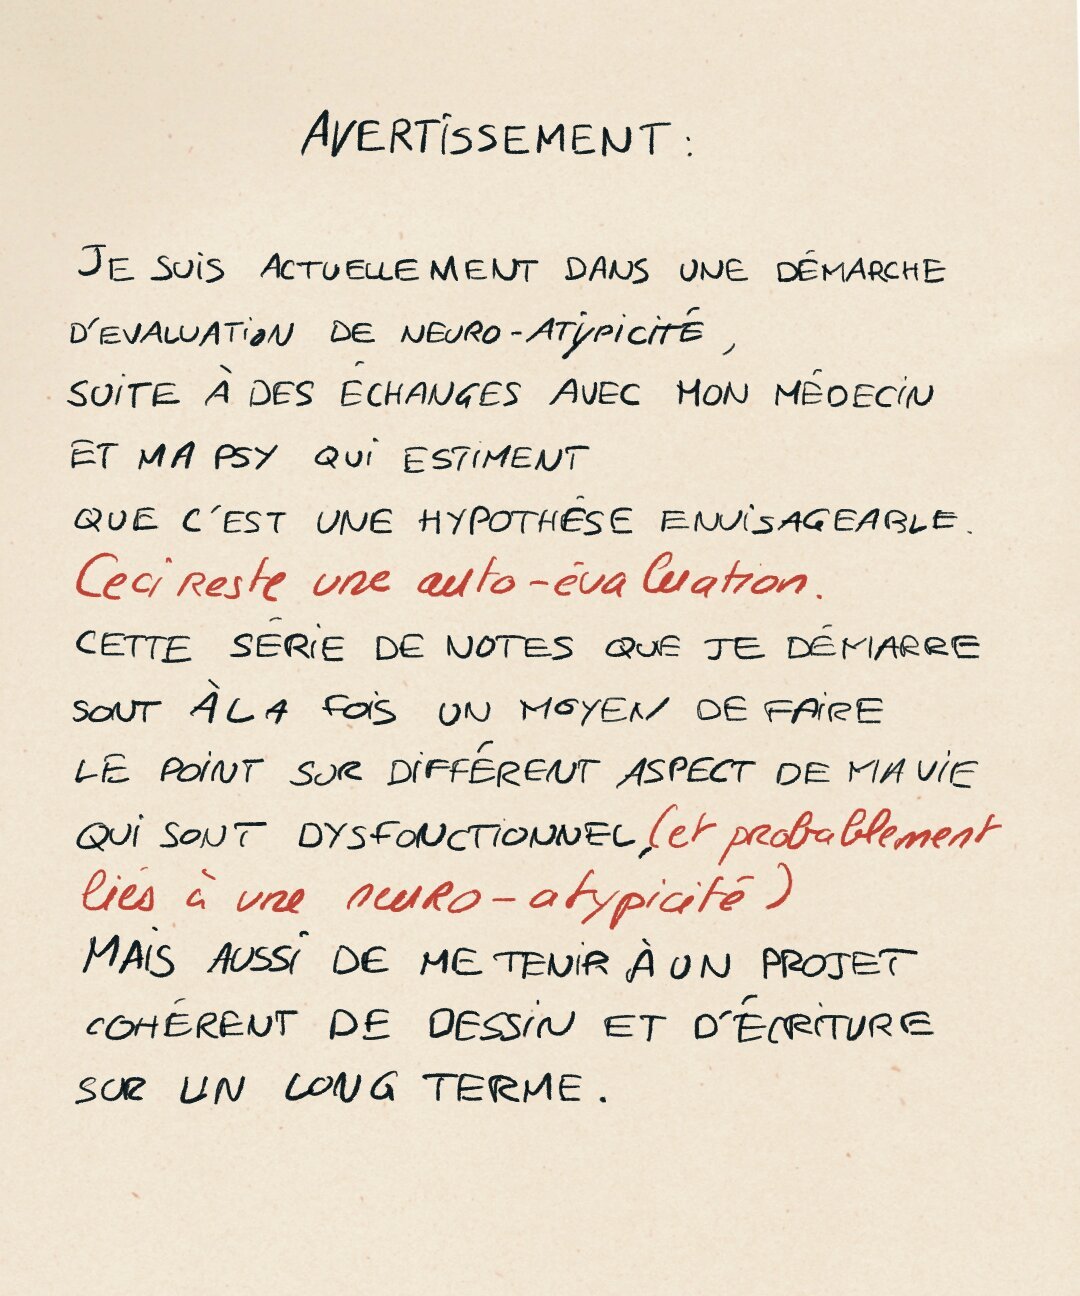 AVERTISSEMENT :
JE SUIS ACTUELLEMENT DANS UNE DÉMARCHE
D'EVALUATION DE NEURO-ATYPICITÉ,
SUITE À DES ÉCHANGES AVEC MON MÉDECIN
ET MA PSY QUI ESTIMENT
QUE C'EST UNE HYPOTHÈSE ENVISAGEABLE.
Ceci reste une auto-évaluation.
CETTE SÉRIE DE NOTES QUE JE DÉMARRE
SONT À LA FOIS UN MOYEN DE FAIRE
LE POINT SUR DIFFÉRENT ASPECT DE MA VIE
QUI SONT DYSFONCTIONNEL, (et probablement
liés à une neuro-atypicité)
MAIS AUSSI DE ME TENIR À UN PROJET
COHÉRENT DE DESSIN ET D'ÉCRITURE
SUR UN LONG TERME.